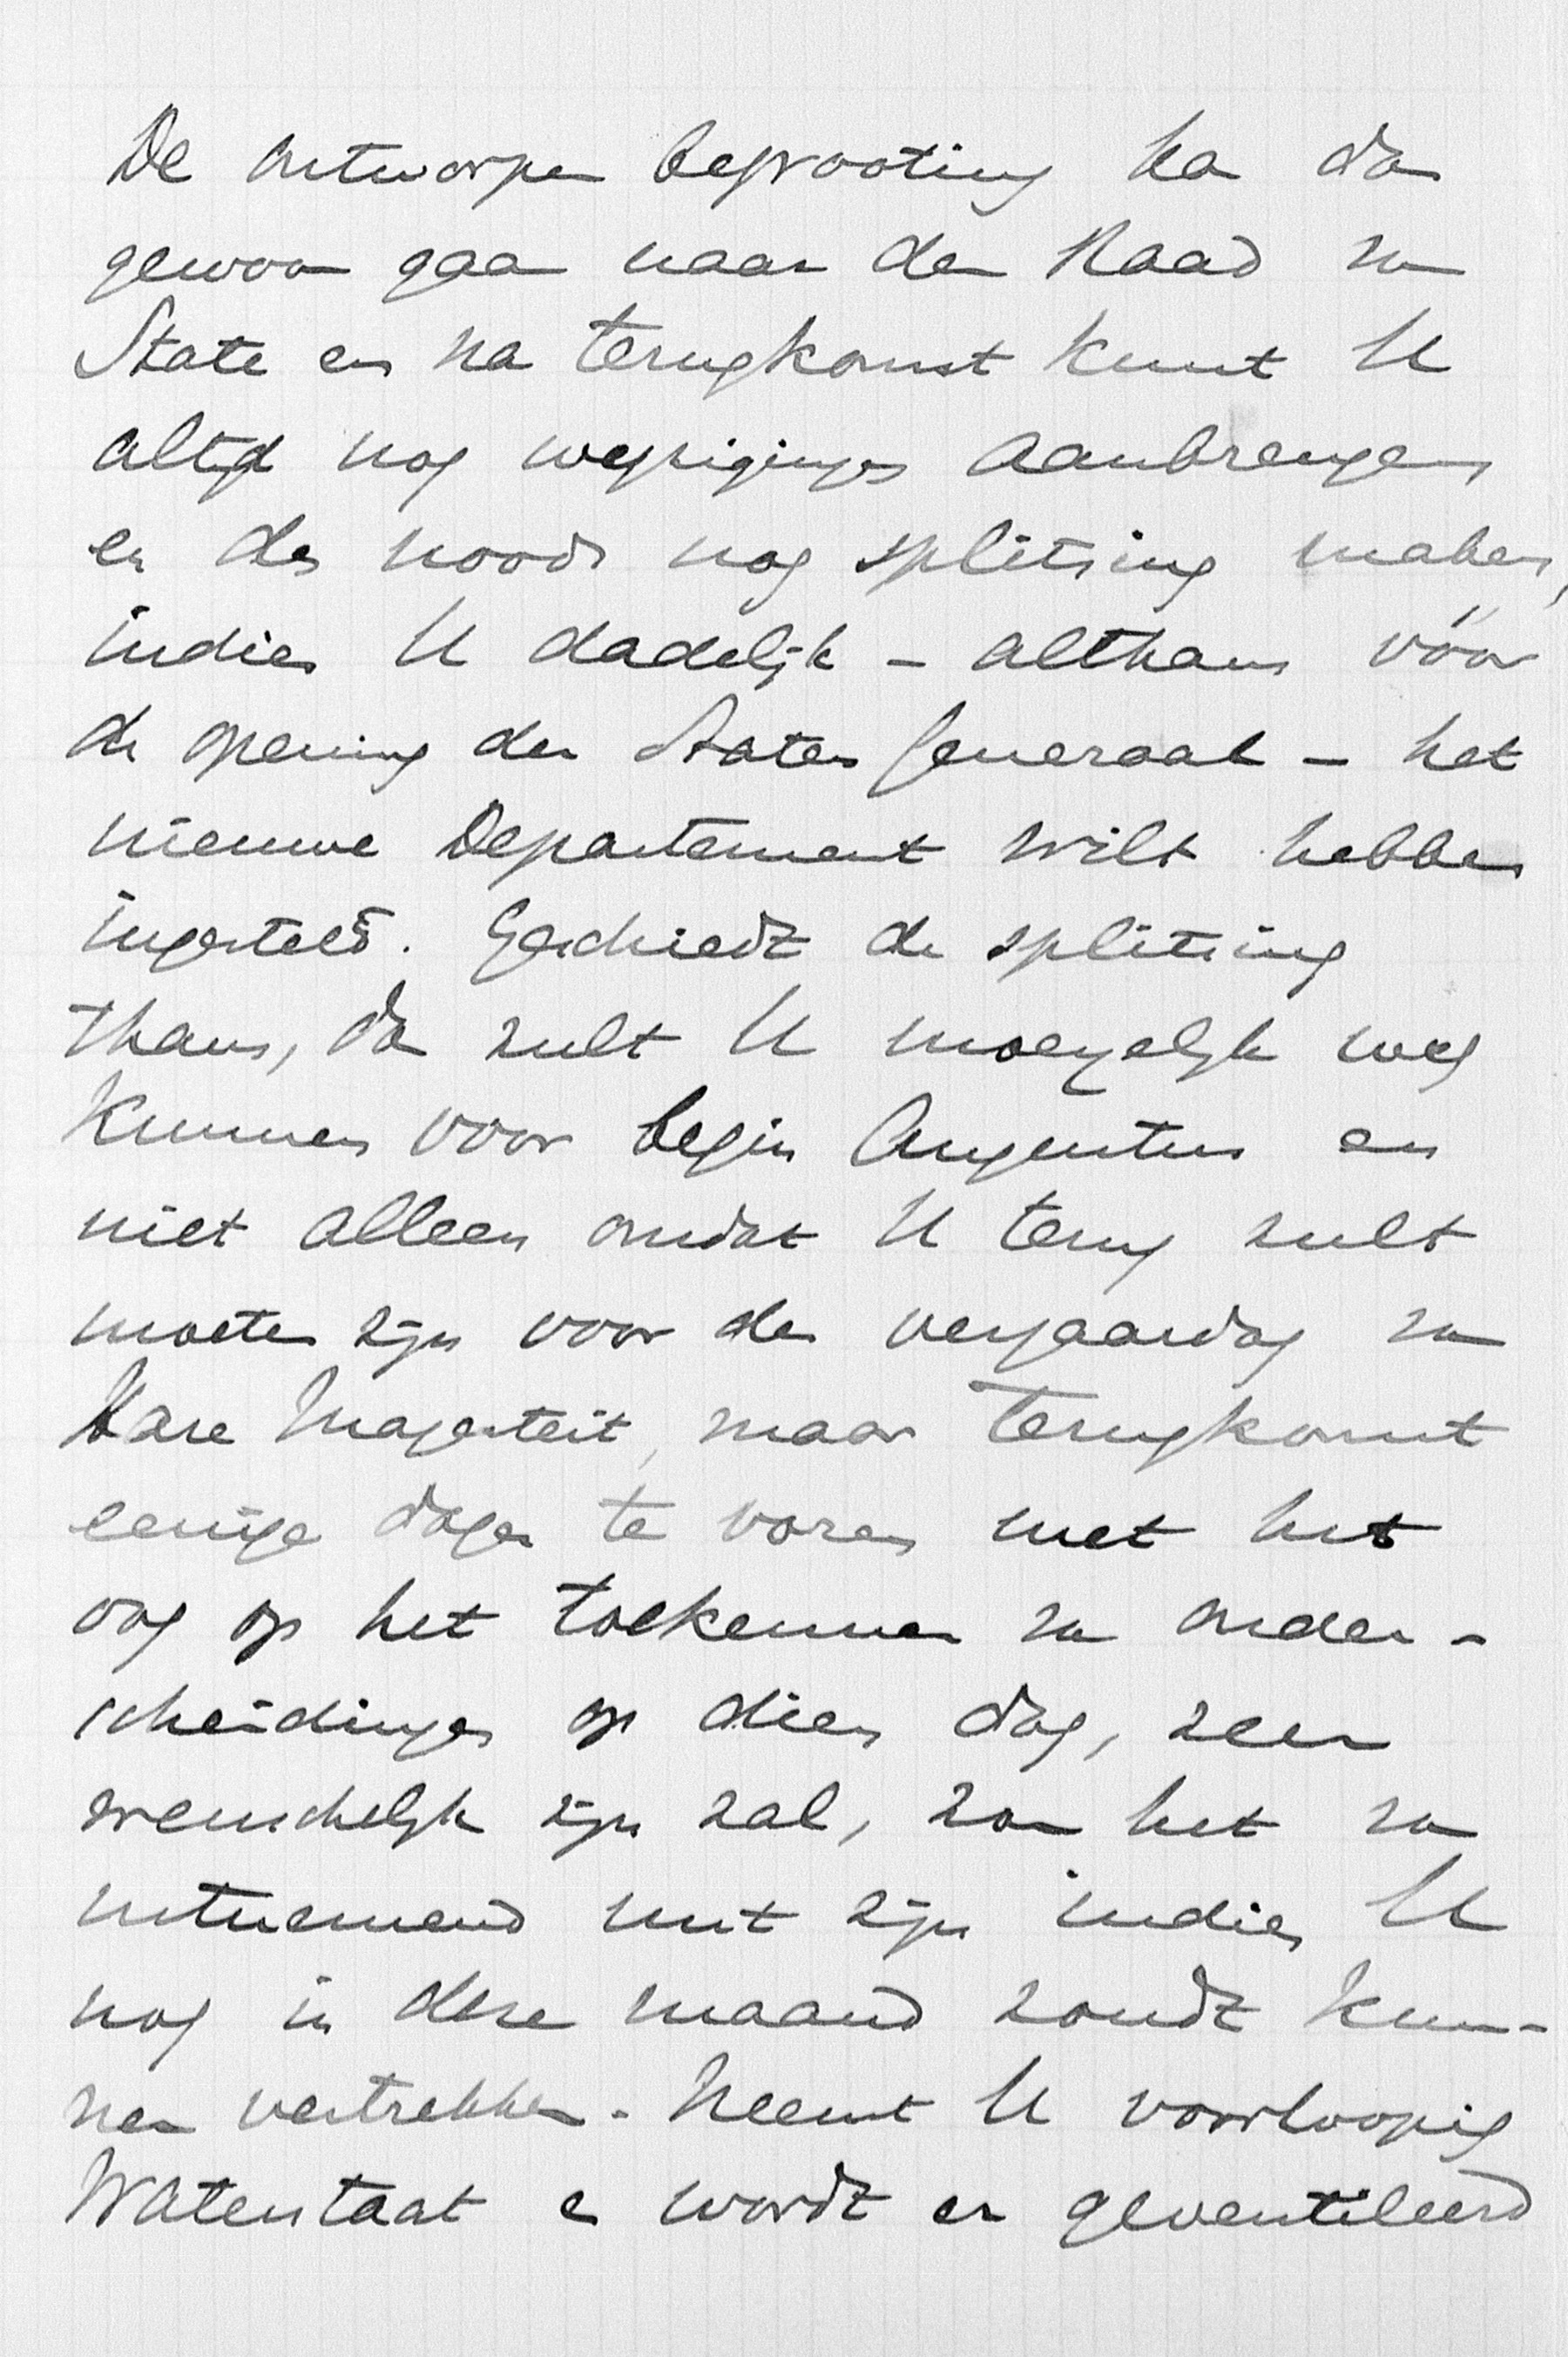 De ontworpen begrooting kan dan
gewoon gaan naar den Raad van
State en na terugkomst kunt U
altijd nog wijzigingen aanbrengen
en des noods nog splitsing maken,
indien U dadelijk – althans vóór
de opening der Staten Generaal – het
nieuwe Departement wilt hebben
ingesteld. Geschiedt de splitsing
thans, dan zult U moeyelijk weg
kunnen voor begin Augustus en
niet alleen omdat U terug zult
moeten zijn voor den verjaardag van
Hare Majesteit, maar terugkomst
eenige dagen te voren met het
oog op het toekennen van onder-
scheidingen op dien dag, zeer
wenschelijk zijn zal, zou het van
uitnemend nut zijn indien U
nog in deze maand zoudt kun-
nen vertrekken. Neemt U voorloopig
Waterstaat en wordt er geventileerd